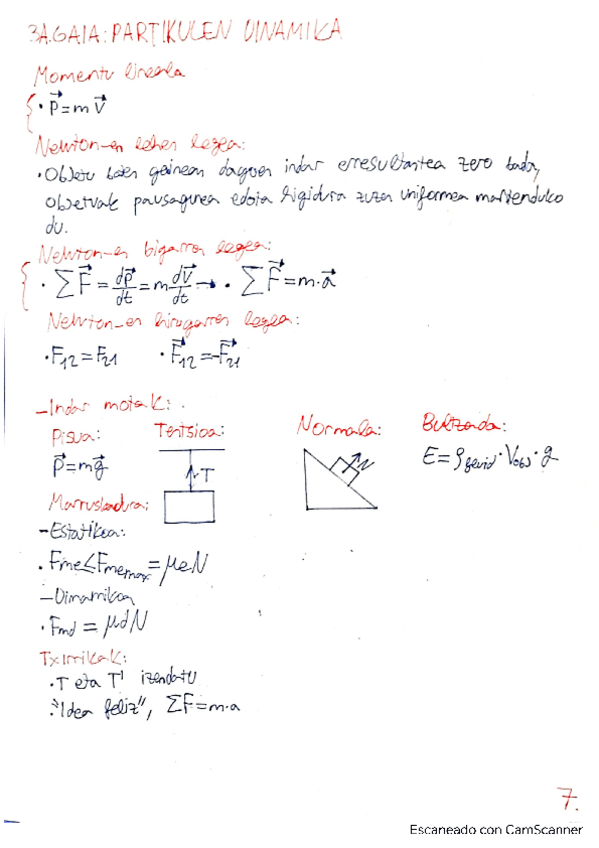 3A.GAIA: PARTIKULEN DINAMIKA
Momentu lineala
· P⃗ = m V⃗
Newton-en lehen legea:
· Objetu baten gainean dagoen indar erresultantea zero bada,
objetuak pausagunea edota higidura zuzen uniformea mantenduko
du.
Newton-en bigarren legea:
· ΣF⃗ = dp⃗/dt = m dv⃗/dt → · ΣF⃗ = m·a⃗
Newton-en hirugarren legea:
· F12 = F21 · F⃗12 = -F⃗21
- Indar motak:
Pisua: Tentsioa: Normala: Bultzada:
P⃗ = mg⃗ T N E = ρ · Vobj · g
Marruskadura:
- Estatikoa:
· Fme ≤ Fme max = μeN
- Dinamikoa
· Fmd = μdN
Txirrikak:
· T eta T' izendatu
· "Idea feliz", ΣF = m·a
7.
Escaneado con CamScanner